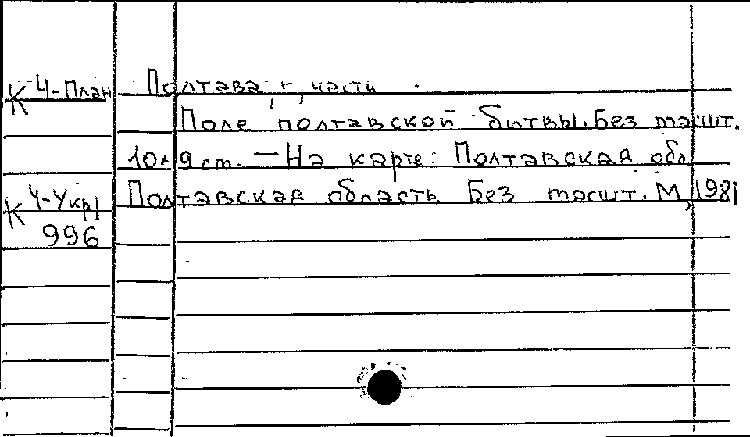 К Ч-План Полтава, г, части
Поле полтавской битвы. Без масшт.
10×9 ст. — На карте: Полтавская обл.
К Ч-Укр Полтавская область. Без масшт. М, 1981
996